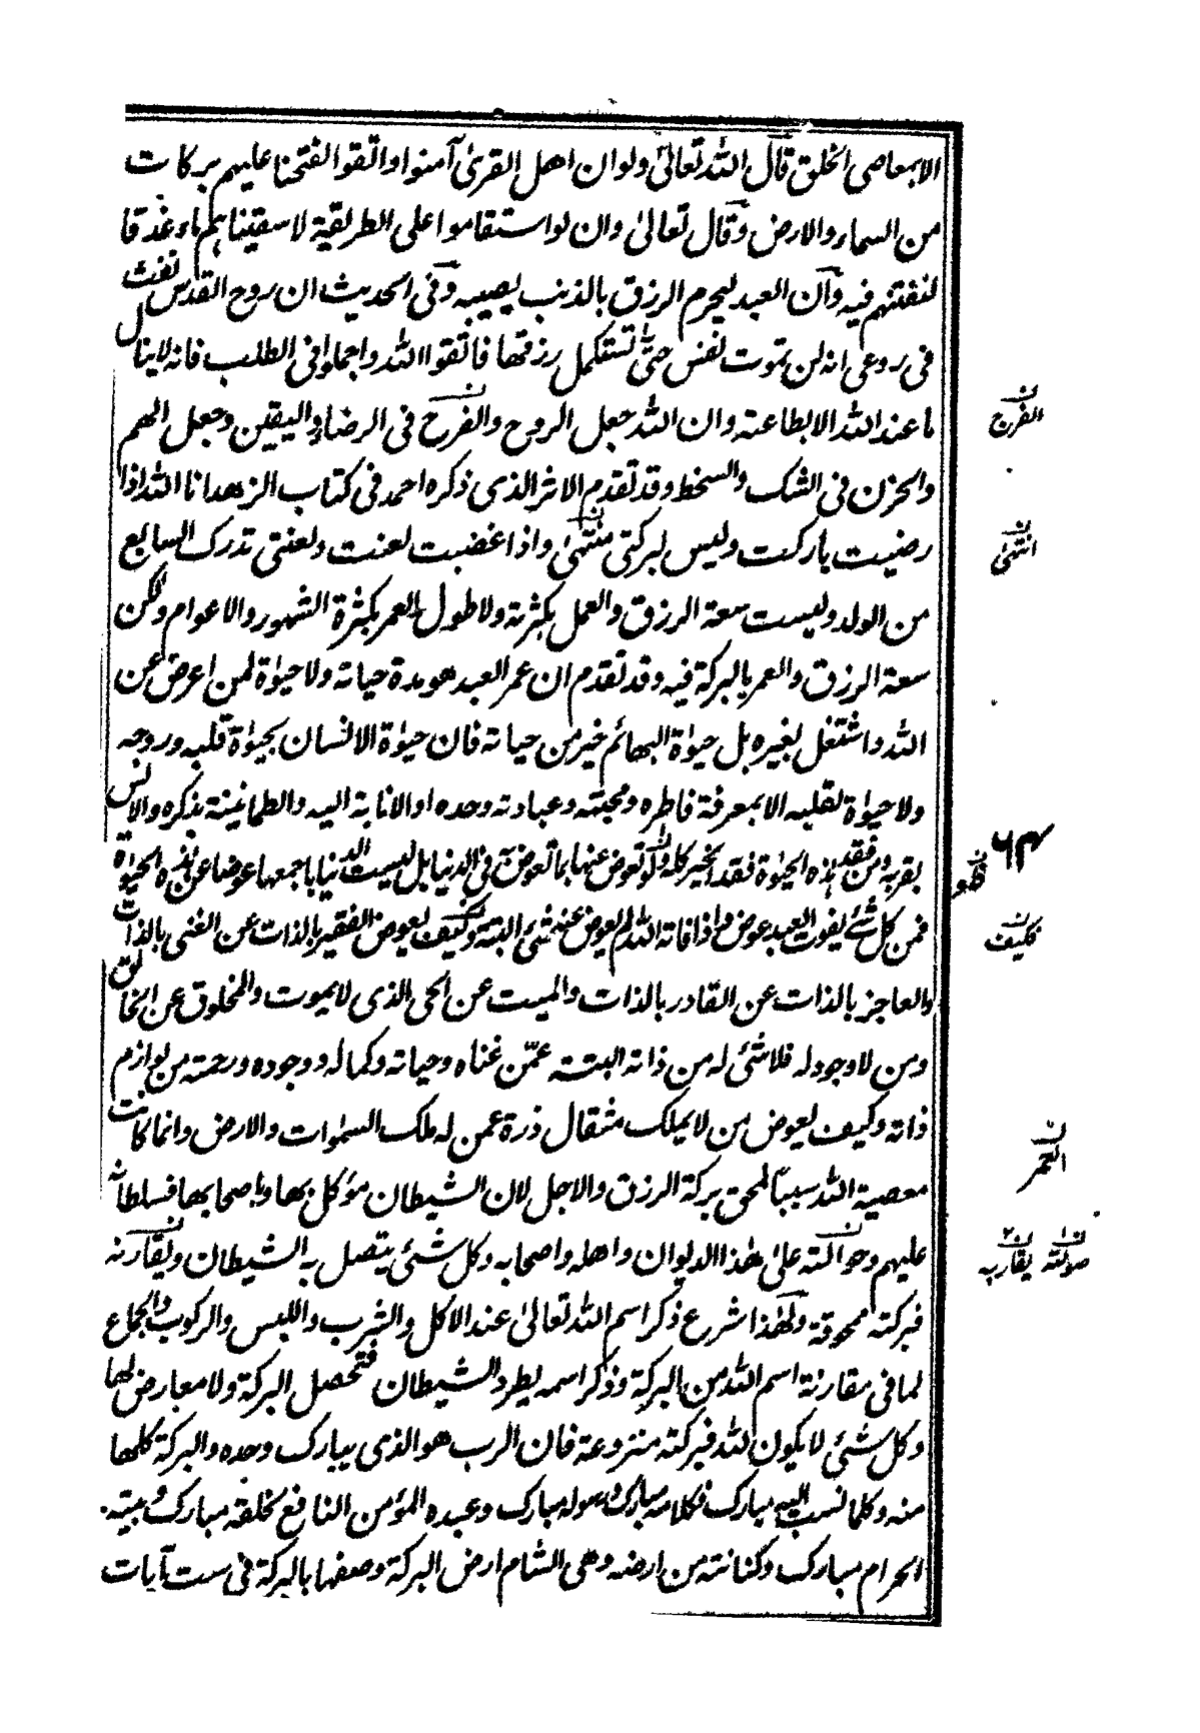 الا بمعاصى الخلق قال الله تعالىٰ ولو ان اهل القرىٰ آمنوا واتقوا لفتحنا عليهم بركات
من السماء والارض وقال تعالىٰ وان لو استقاموا على الطريقة لاسقيناهم ماء غدقا
لنفتنهم فيه وان العبد ليحرم الرزق بالذنب يصيبه وفى الحديث ان روح القدس نفث
فى روعى انه لن تموت نفس حتىٰ تستكمل رزقها فاتقوا الله واجملوا فى الطلب فانه لاينال
ما عند الله الا بطاعته وان الله جعل الروح والفرح فى الرضا واليقين وجعل الهم
والحزن فى الشك والسخط وقد تقدم الاثر الذى ذكره احمد فى كتاب الزهد انا الله اذا
رضيت باركت وليس لبركتى منتهىٰ واذا غضبت لعنت ولعنتى تدرك السابع
من الولد وليست سعة الرزق والعمل بكثرته ولا طول العمر بكثرة الشهور والاعوام ولكن
سعة الرزق والعمر بالبركة فيه وقد تقدم ان عمر العبد هو مدة حياته ولا حيوٰة لمن اعرض عن
الله واشتغل بغيره بل حيوٰة البهائم خير من حياته فان حيوٰة الانسان بحيوٰة قلبه وروحه
ولا حيوٰة لقلبه الا بمعرفة فاطره ومحبته وعبادته وحده او الانابة اليه والطمانينة بذكره والانس
بقربه ومن فقد هذه الحيوٰة فقد الخير كله ولو تعوض عنها بما تعوض فى الدنيا بل ليست الدنيا باجمعها عوضا عن هذه الحيوٰة
فمن كل شئ يفوت العبد عوض واذا فاته الله لم يعوض عنه شئ البتة وكيف يعوض الفقير بالذات عن الغنى بالذات
والعاجز بالذات عن القادر بالذات والميت عن الحى الذى لايموت والمخلوق عن الخالق
ومن لا وجود له فلا شئ له من ذاته البتة عمّن غناه وحياته وكماله ووجوده ورحمته من لوازم
ذاته وكيف يعوض من لايملك مثقال ذرة عمن له ملك السمٰوات والارض وانما كانت
معصية الله سببا لمحق بركة الرزق والاجل لان الشيطان مؤكل بها وباصحابها فسلطانه
عليهم وحوالته علىٰ هٰذا الديوان واهله واصحابه وكل شئ يتصل به الشيطان ويقارنه
فبركته ممحوقة ولهٰذا شرع ذكر اسم الله تعالىٰ عند الاكل والشرب واللبس والركوب والجماع
لما فى مقارنة اسم الله من البركة وذكر اسمه يطرد الشيطان فتحصل البركة ولا معارض لها
وكل شئ لا يكون لله فبركته منزوعة فان الرب هو الذى يبارك وحده والبركة كلها
منه وكلما نسب اليه مبارك فكلامه مبارك ورسوله مبارك وعبده المؤمن النافع لخلقه مبارك وبيته
الحرام مبارك وكنانته من ارضه وهى الشام ارض البركة وصفها بالبركة فى ست آيات
ن
الفرج
ن
انتهىٰ
٦٤
ن
فلو
ن
فكيف
ن
العمر
ن صولته ن٢ يقاربه